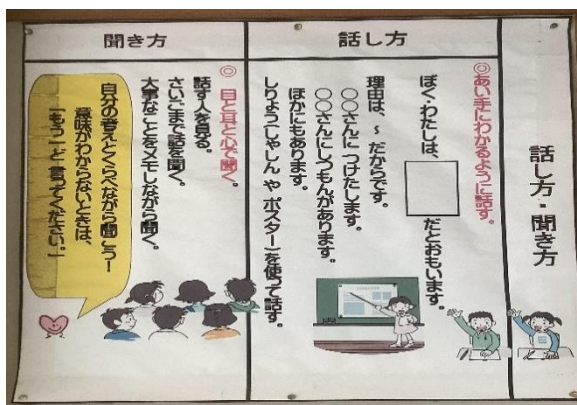 話し方・聞き方
話し方
◎あい手にわかるように話す。
ぼく・わたしは、□だとおもいます。
理由は、~だからです。
○○さんにつけたします。
○○さんにしつもんがあります。
ほかにもあります。
しりょう(しゃしんやポスター)を使って話す。
聞き方
◎目と耳と心で聞く。
話す人を見る。
さいごまで話を聞く。
大事なことをメモしながら聞く。
自分の考えとくらべながら聞こう!
意味がわからないときは、
「もう一ど言ってください。」